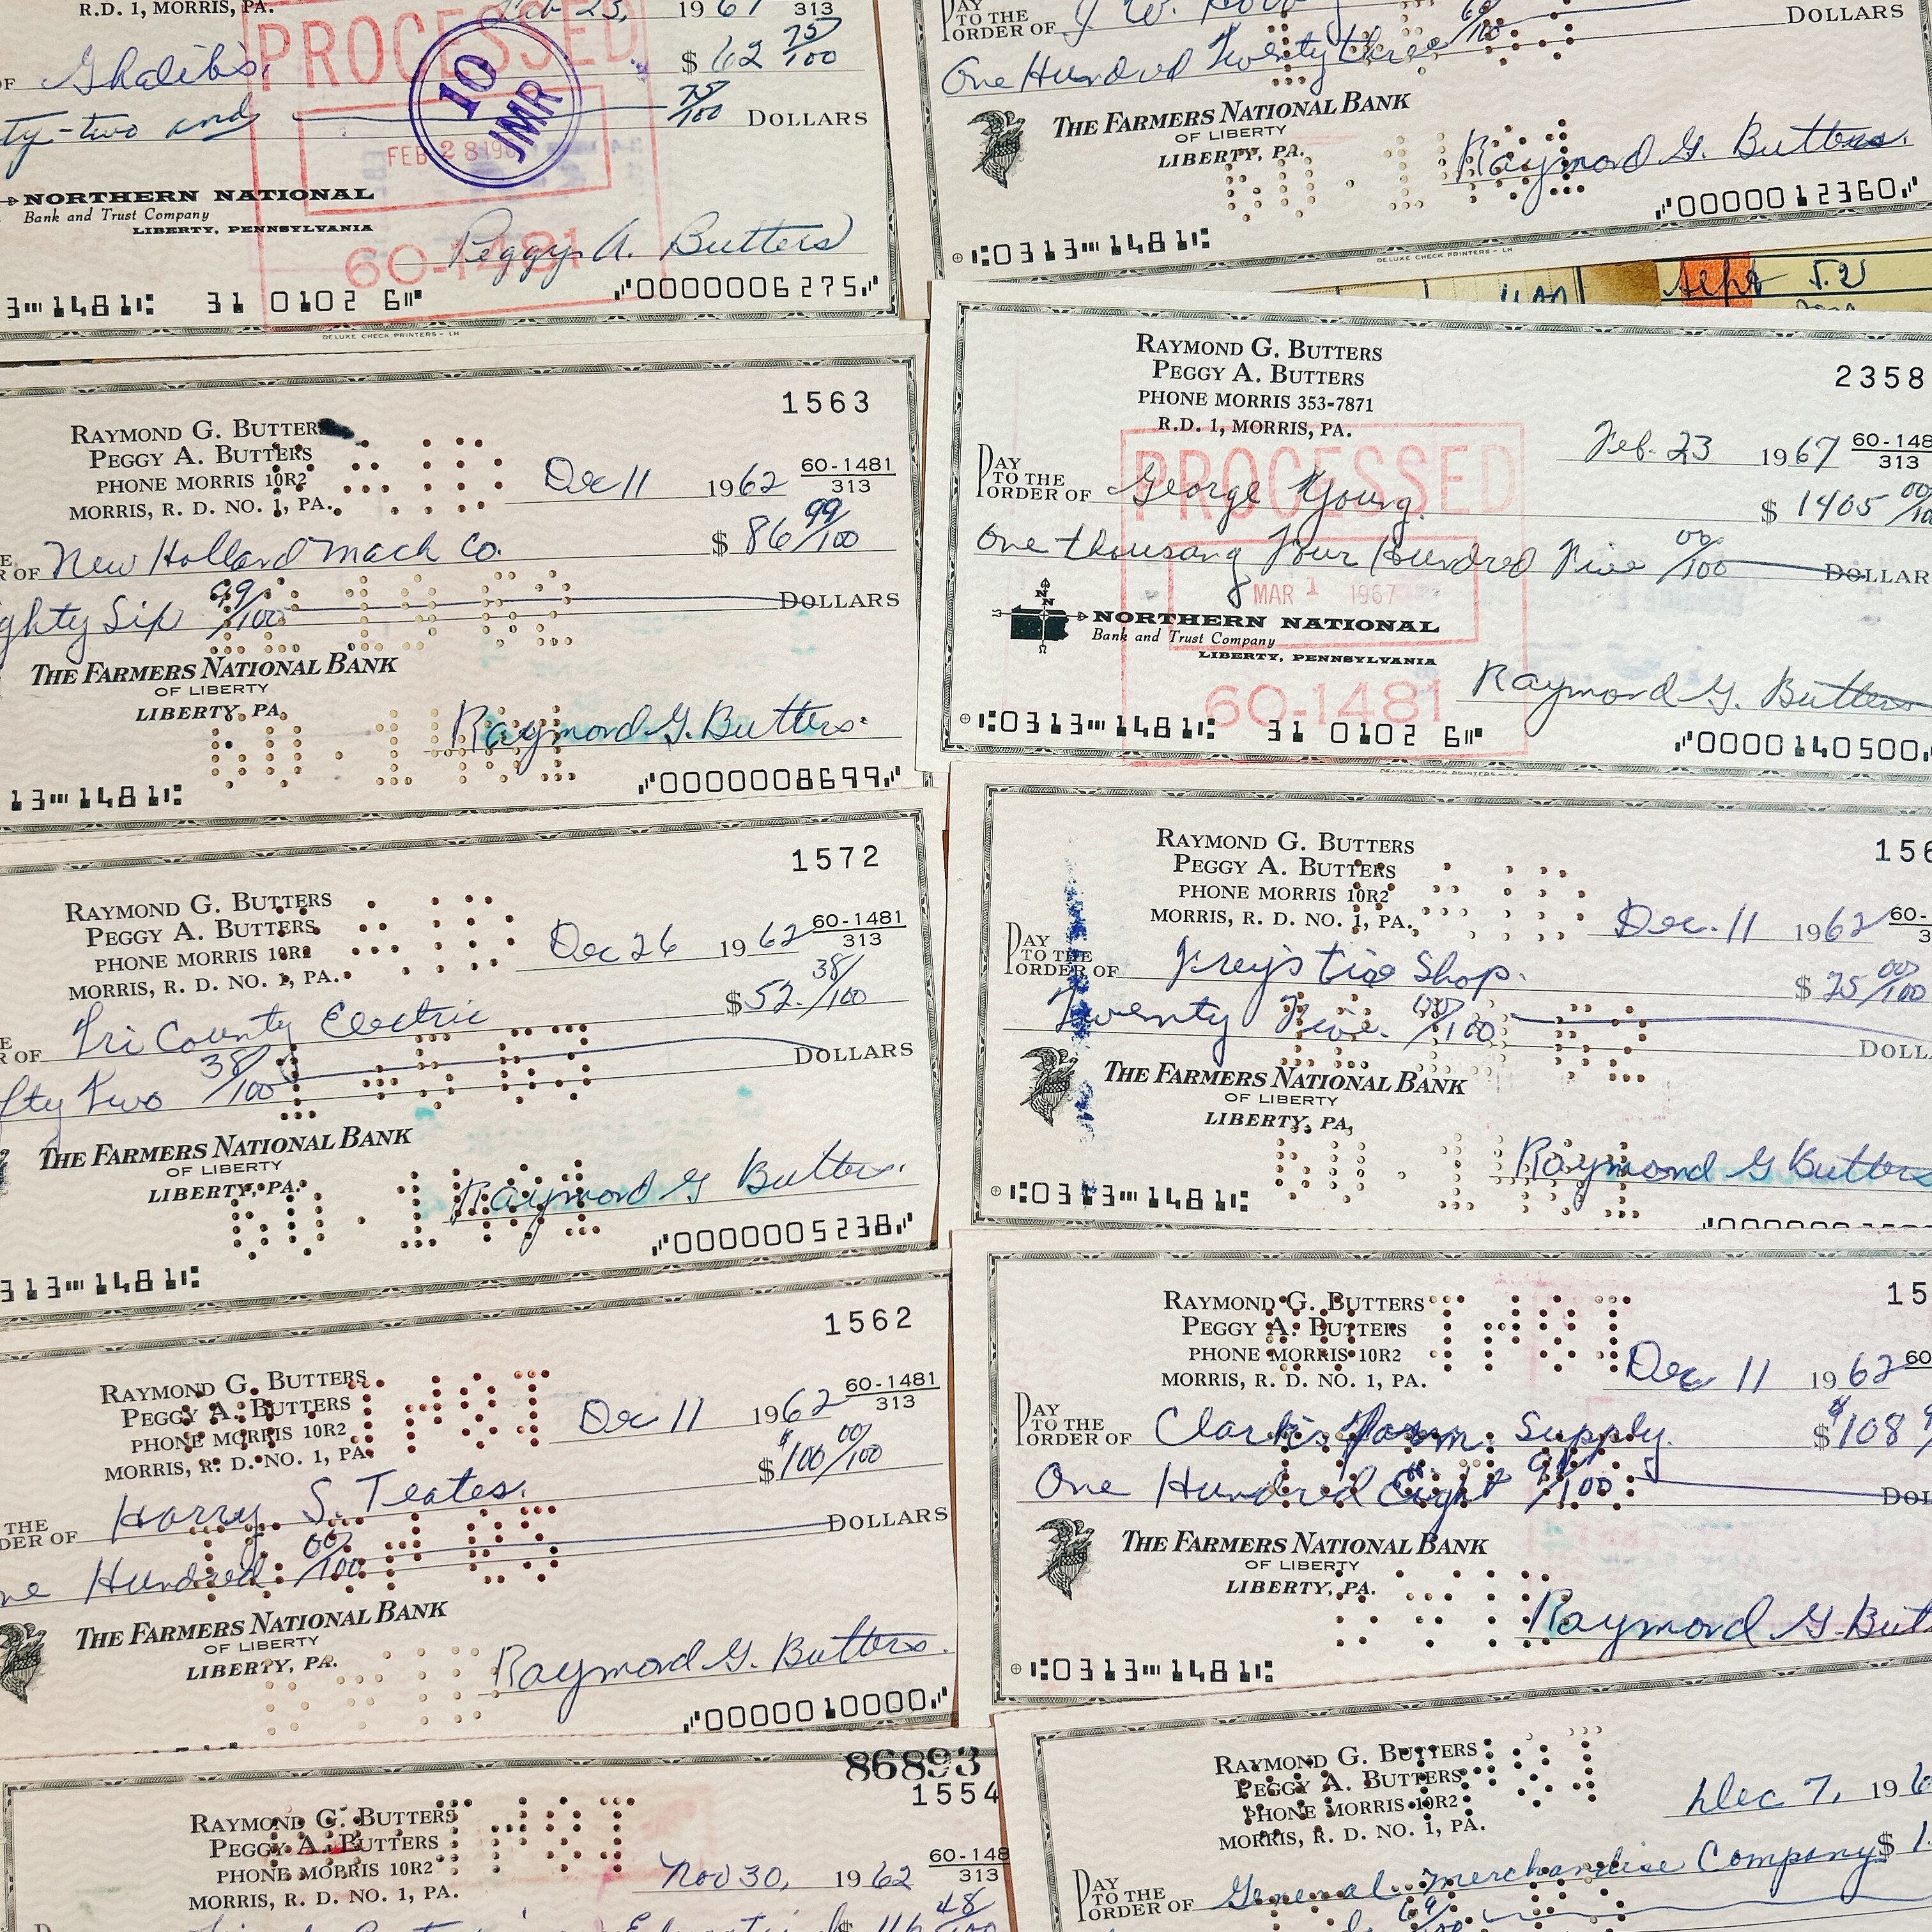 R.D. 1, MORRIS, PA.
Feb 23, 1967
313
PROCESSED
OF Ghalib's
$ 62 75/100
ty-two and 75/100 DOLLARS
10
JMR
FEB 28 196
NORTHERN NATIONAL
Bank and Trust Company
LIBERTY, PENNSYLVANIA
60-1481
Peggy A. Butters
3⑉1481⑆ 31 0102 6⑈
⑈0000006275⑈
DELUXE CHECK PRINTERS - LH
PAY
TO THE
ORDER OF J. W.
DOLLARS
One Hundred Twenty three 60/100
THE FARMERS NATIONAL BANK
OF LIBERTY
LIBERTY, PA.
Raymond G. Butters.
⑆0313⑉1481⑆
⑈0000012360⑈
DELUXE CHECK PRINTERS - LH
Sept 5.25
1563
RAYMOND G. BUTTERS
PEGGY A. BUTTERS
PHONE MORRIS 10R2
MORRIS, R. D. NO. 1, PA.
Dec 11 1962 60-1481
313
E
R OF New Holland Mach Co.
$ 86 99/100
ghty Six 99/100 DOLLARS
THE FARMERS NATIONAL BANK
OF LIBERTY
LIBERTY, PA.
Raymond G. Butters.
13⑉1481⑆
⑈0000008699⑈
RAYMOND G. BUTTERS
PEGGY A. BUTTERS
PHONE MORRIS 353-7871
R.D. 1, MORRIS, PA.
2358
Feb. 23 1967 60-148
313
PROCESSED
PAY
TO THE
ORDER OF George Young.
$ 1405 00/10
One thousang Four Hundred Five 00/100 DOLLAR
MAR 1 1967
N
NORTHERN NATIONAL
Bank and Trust Company
LIBERTY, PENNSYLVANIA
60-1481
Raymond G. Butters
⑆0313⑉1481⑆ 31 0102 6⑈
⑈0000140500⑈
DELUXE CHECK PRINTERS - LH
1572
RAYMOND G. BUTTERS
PEGGY A. BUTTERS
PHONE MORRIS 10R2
MORRIS, R. D. NO. 1, PA.
Dec 26 1962 60-1481
313
E
R OF Tri County Electric
$ 52. 38/100
fty Two 38/100 DOLLARS
THE FARMERS NATIONAL BANK
OF LIBERTY
LIBERTY, PA.
Raymond G Butters.
313⑉1481⑆
⑈0000005238⑈
156
RAYMOND G. BUTTERS
PEGGY A. BUTTERS
PHONE MORRIS 10R2
MORRIS, R. D. NO. 1, PA.
Dec. 11 1962 60-
3
PAY
TO THE
ORDER OF Frey's tire Shop.
$ 25 00/100
Twenty Five. 00/100
DOLL
THE FARMERS NATIONAL BANK
OF LIBERTY
LIBERTY, PA.
Raymond G Butters
⑆0313⑉1481⑆
1562
RAYMOND G. BUTTERS
PEGGY A. BUTTERS
PHONE MORRIS 10R2
MORRIS, R. D. NO. 1, PA.
Dec 11 1962 60-1481
313
THE
DER OF Harry S. Teates.
$ 100 00/100
ne Hundred 00/100 DOLLARS
THE FARMERS NATIONAL BANK
OF LIBERTY
LIBERTY, PA.
Raymond G. Butters.
⑈0000010000⑈
15
RAYMOND G. BUTTERS
PEGGY A. BUTTERS
PHONE MORRIS 10R2
MORRIS, R. D. NO. 1, PA.
Dec 11 1962 60
PAY
TO THE
ORDER OF Clark's Farm Supply.
$ 108
One Hundred Eight /100 DOL
THE FARMERS NATIONAL BANK
OF LIBERTY
LIBERTY, PA.
Raymond G. But
⑆0313⑉1481⑆
86893
1554
RAYMOND G. BUTTERS
PEGGY A. BUTTERS
PHONE MORRIS 10R2
MORRIS, R. D. NO. 1, PA.
Nov 30, 1962
60-148
313
48/100
RAYMOND G. BUTTERS
PEGGY A. BUTTERS
PHONE MORRIS 10R2
MORRIS, R. D. NO. 1, PA.
Dec 7, 196
PAY
TO THE
ORDER OF General Merchandise Company $ 1